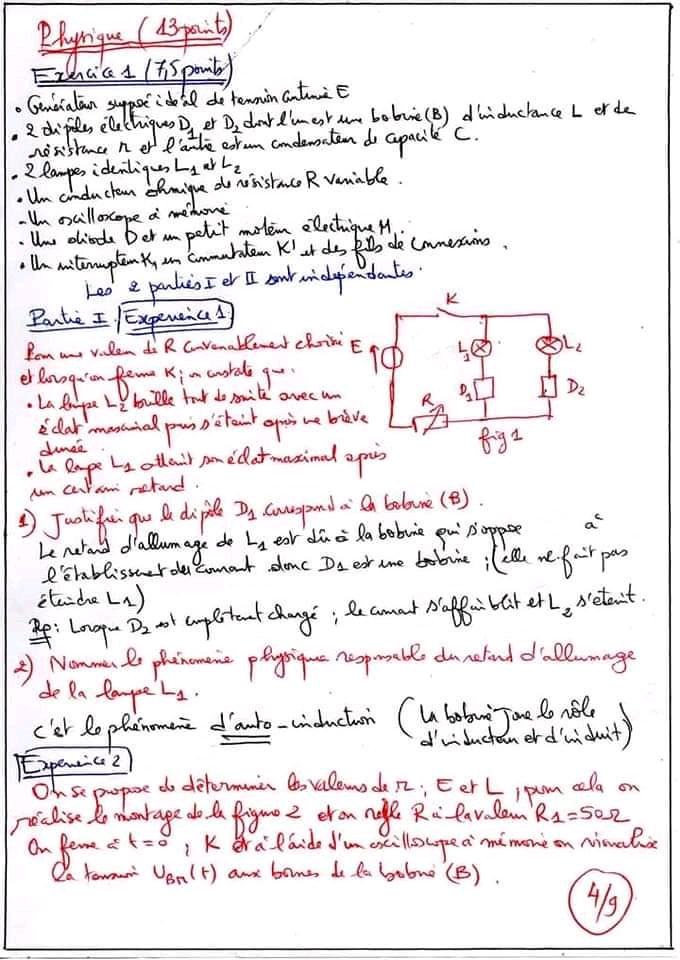 Physique (13 points)
Exercice 1 (7,5 points)
• Générateur supposé idéal de tension continue E
• 2 dipôles électriques D1 et D2 dont l'un est une bobine (B) d'inductance L et de
résistance r et l'autre est un condensateur de capacité C.
• 2 lampes identiques L1 et L2
• Un conducteur ohmique de résistance R variable.
- Un oscilloscope à mémoire
• Une diode D et un petit moteur électrique M,
• Un interrupteur K, un commutateur K' et des fils de connexions.
Les 2 parties I et II sont indépendantes.
Partie I / Experience 1
Pour une valeur de R convenablement choisie
et lorsqu'on ferme K, on constate que :
• La lampe L2 brille tout de suite avec un
éclat maximal puis s'éteint après une brève
durée.
• La lampe L1 atteint son éclat maximal après
un certain retard.
K
E
L1
L2
D1
D2
R
fig 1
1) Justifier que le dipôle D1 correspond à la bobine (B).
Le retard d'allumage de L1 est dû à la bobine qui s'oppose à
l'établissement du courant donc D1 est une bobine ; (elle ne fait pas
éteindre L1)
Rq: Lorsque D2 est complètement chargé ; le courant s'affaiblit et L2 s'éteint.
2) Nommer le phénomène physique responsable du retard d'allumage
de la lampe L1.
c'et le phénomène d'auto-induction (La bobine joue le rôle
d'inducteur et d'induit)
Experience 2
On se propose de déterminer les valeurs de r ; E et L , pour cela on
réalise le montage de la figure 2 et on règle R à la valeur R1 = 50Ω
On ferme à t=0 , K et à l'aide d'un oscilloscope à mémoire on visualise
la tension UBM(t) aux bornes de la bobine (B).
4/9